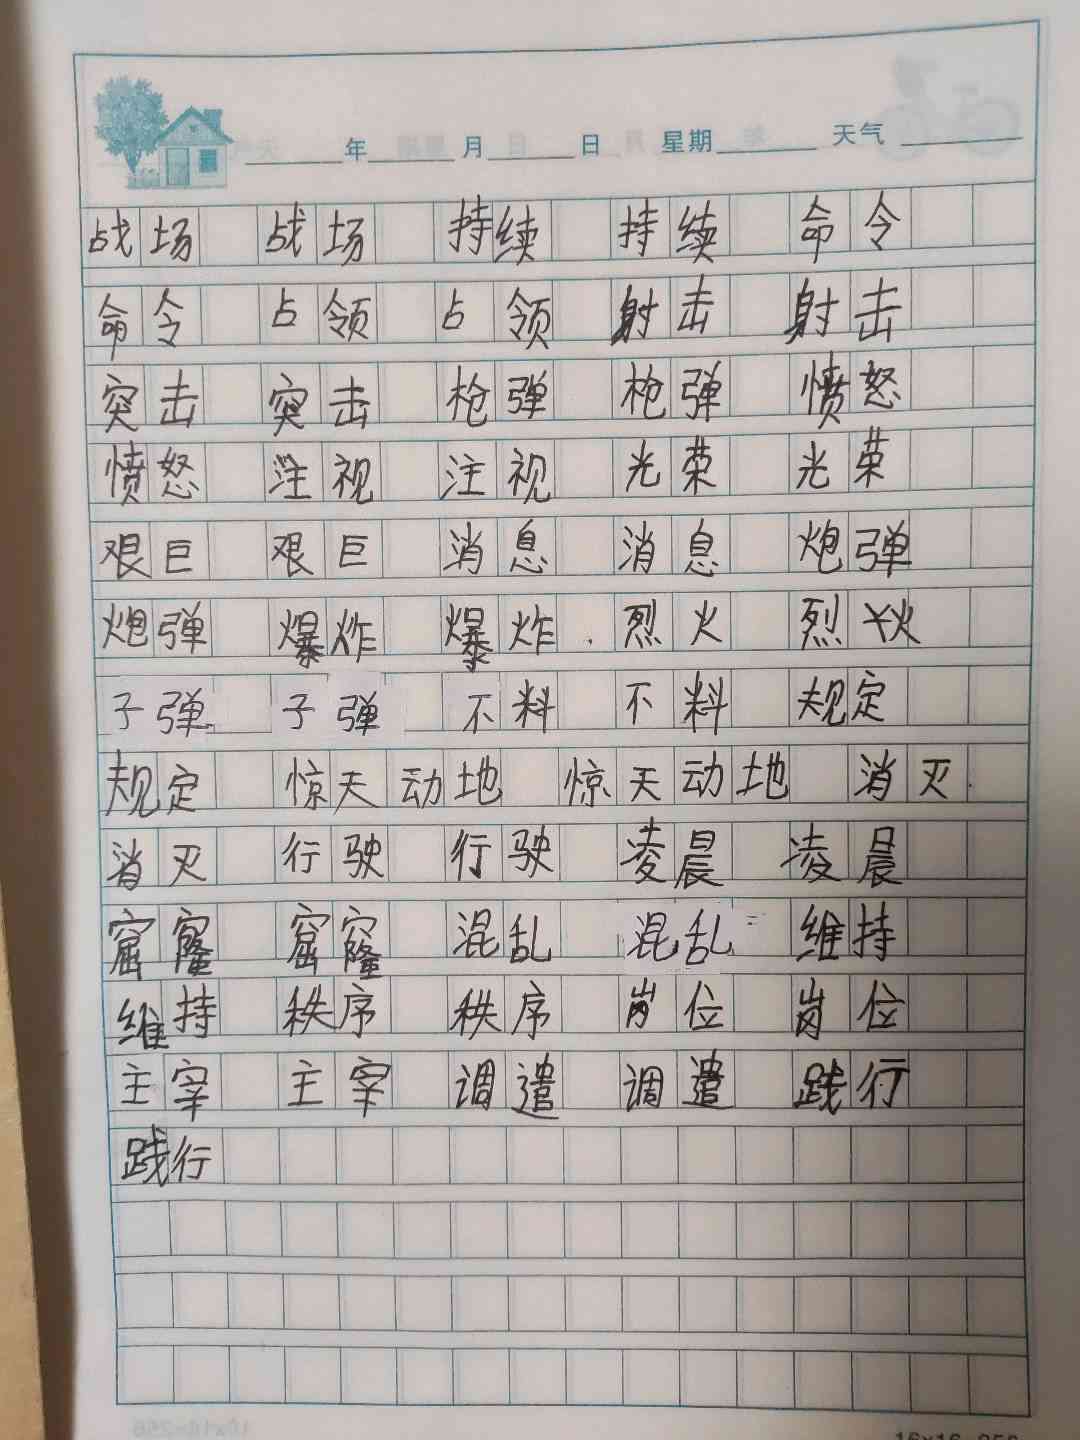 年 月 日 星期 天气
战场 战场 持续 持续 命令
命令 占领 占领 射击 射击
突击 突击 枪弹 枪弹 愤怒
愤怒 注视 注视 光荣 光荣
艰巨 艰巨 消息 消息 炮弹
炮弹 爆炸 爆炸 烈火 烈火
子弹 子弹 不料 不料 规定
规定 惊天动地 惊天动地 消灭
消灭 行驶 行驶 凌晨 凌晨
窟窿 窟窿 混乱 混乱 维持
维持 秩序 秩序 岗位 岗位
主宰 主宰 调遣 调遣 践行
践行